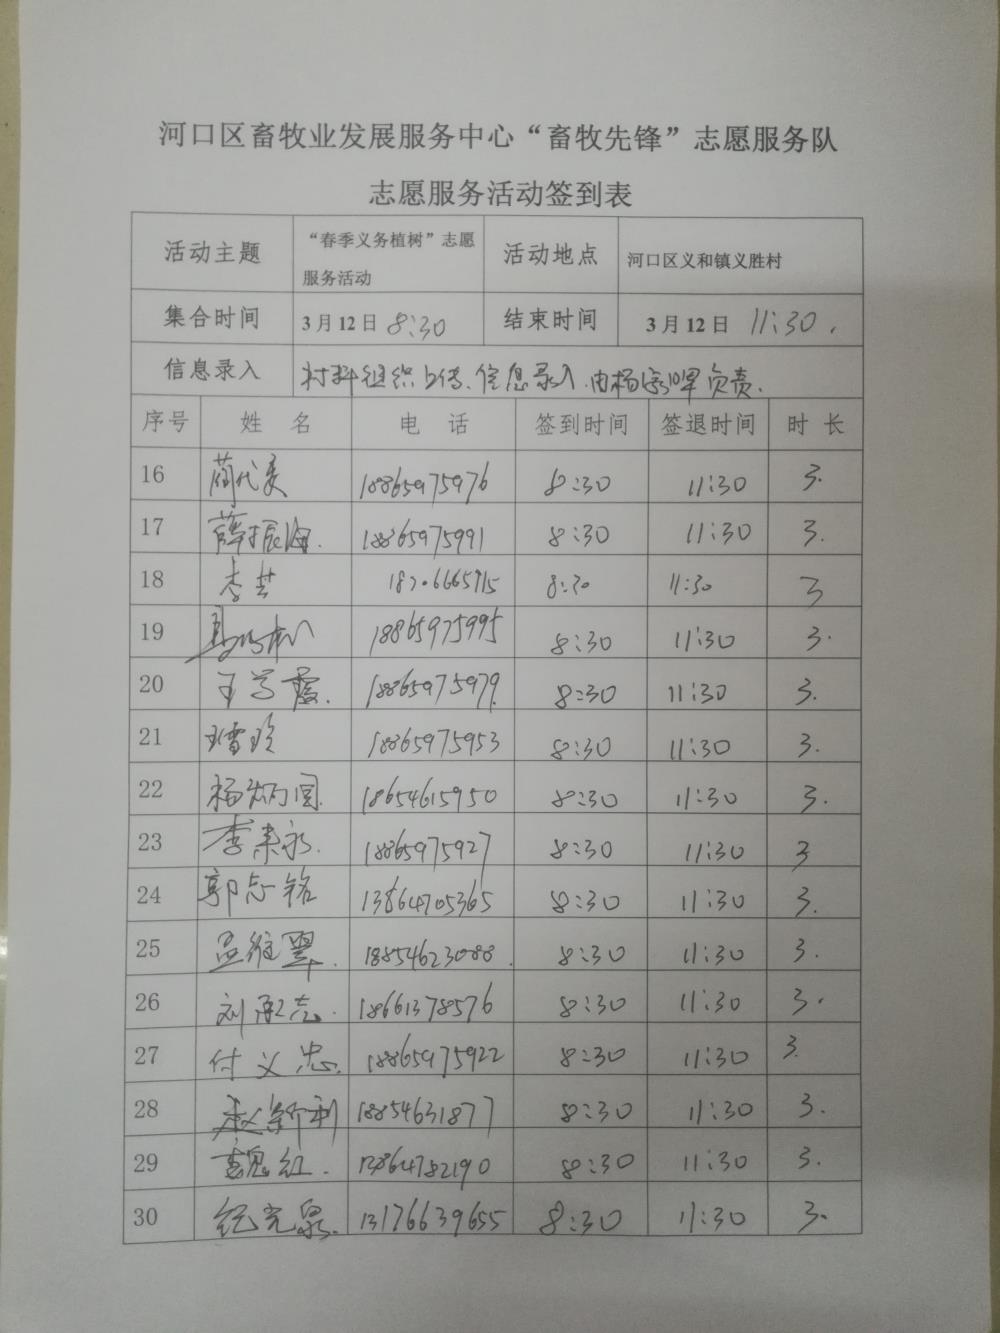 河口区畜牧业发展服务中心“畜牧先锋”志愿服务队
志愿服务活动签到表
活动主题 “春季义务植树”志愿服务活动 活动地点 河口区义和镇义胜村
集合时间 3月12日 8:30 结束时间 3月12日 11:30.
信息录入 材料组织上传、信息录入、由杨 负责.
序号 姓 名 电 话 签到时间 签退时间 时 长
16 18865975976 8:30 11:30 3.
17 薛振海. 18865975991 8:30 11:30 3.
18 李芸 18206665915 8:30 11:30 3
19 18865975995 8:30 11:30 3.
20 王写霞. 18865975979. 8:30 11:30 3.
21 18865975953 8:30 11:30 3.
22 杨炳国. 18654615950 8:30 11:30 3.
23 李素永. 18865975927 8:30 11:30 3
24 郭志铭 13864705365 8:30 11:30 3.
25 孟维翠. 18854623088. 8:30 11:30 3.
26 刘 志. 18661378576 8:30 11:30 3.
27 付义忠. 18865975922 8:30 11:30 3.
28 赵新利 18854631877 8:30 11:30 3.
29 魏红. 13864782190 8:30 11:30 3.
30 纪光泉. 13176639655 8:30 11:30 3.